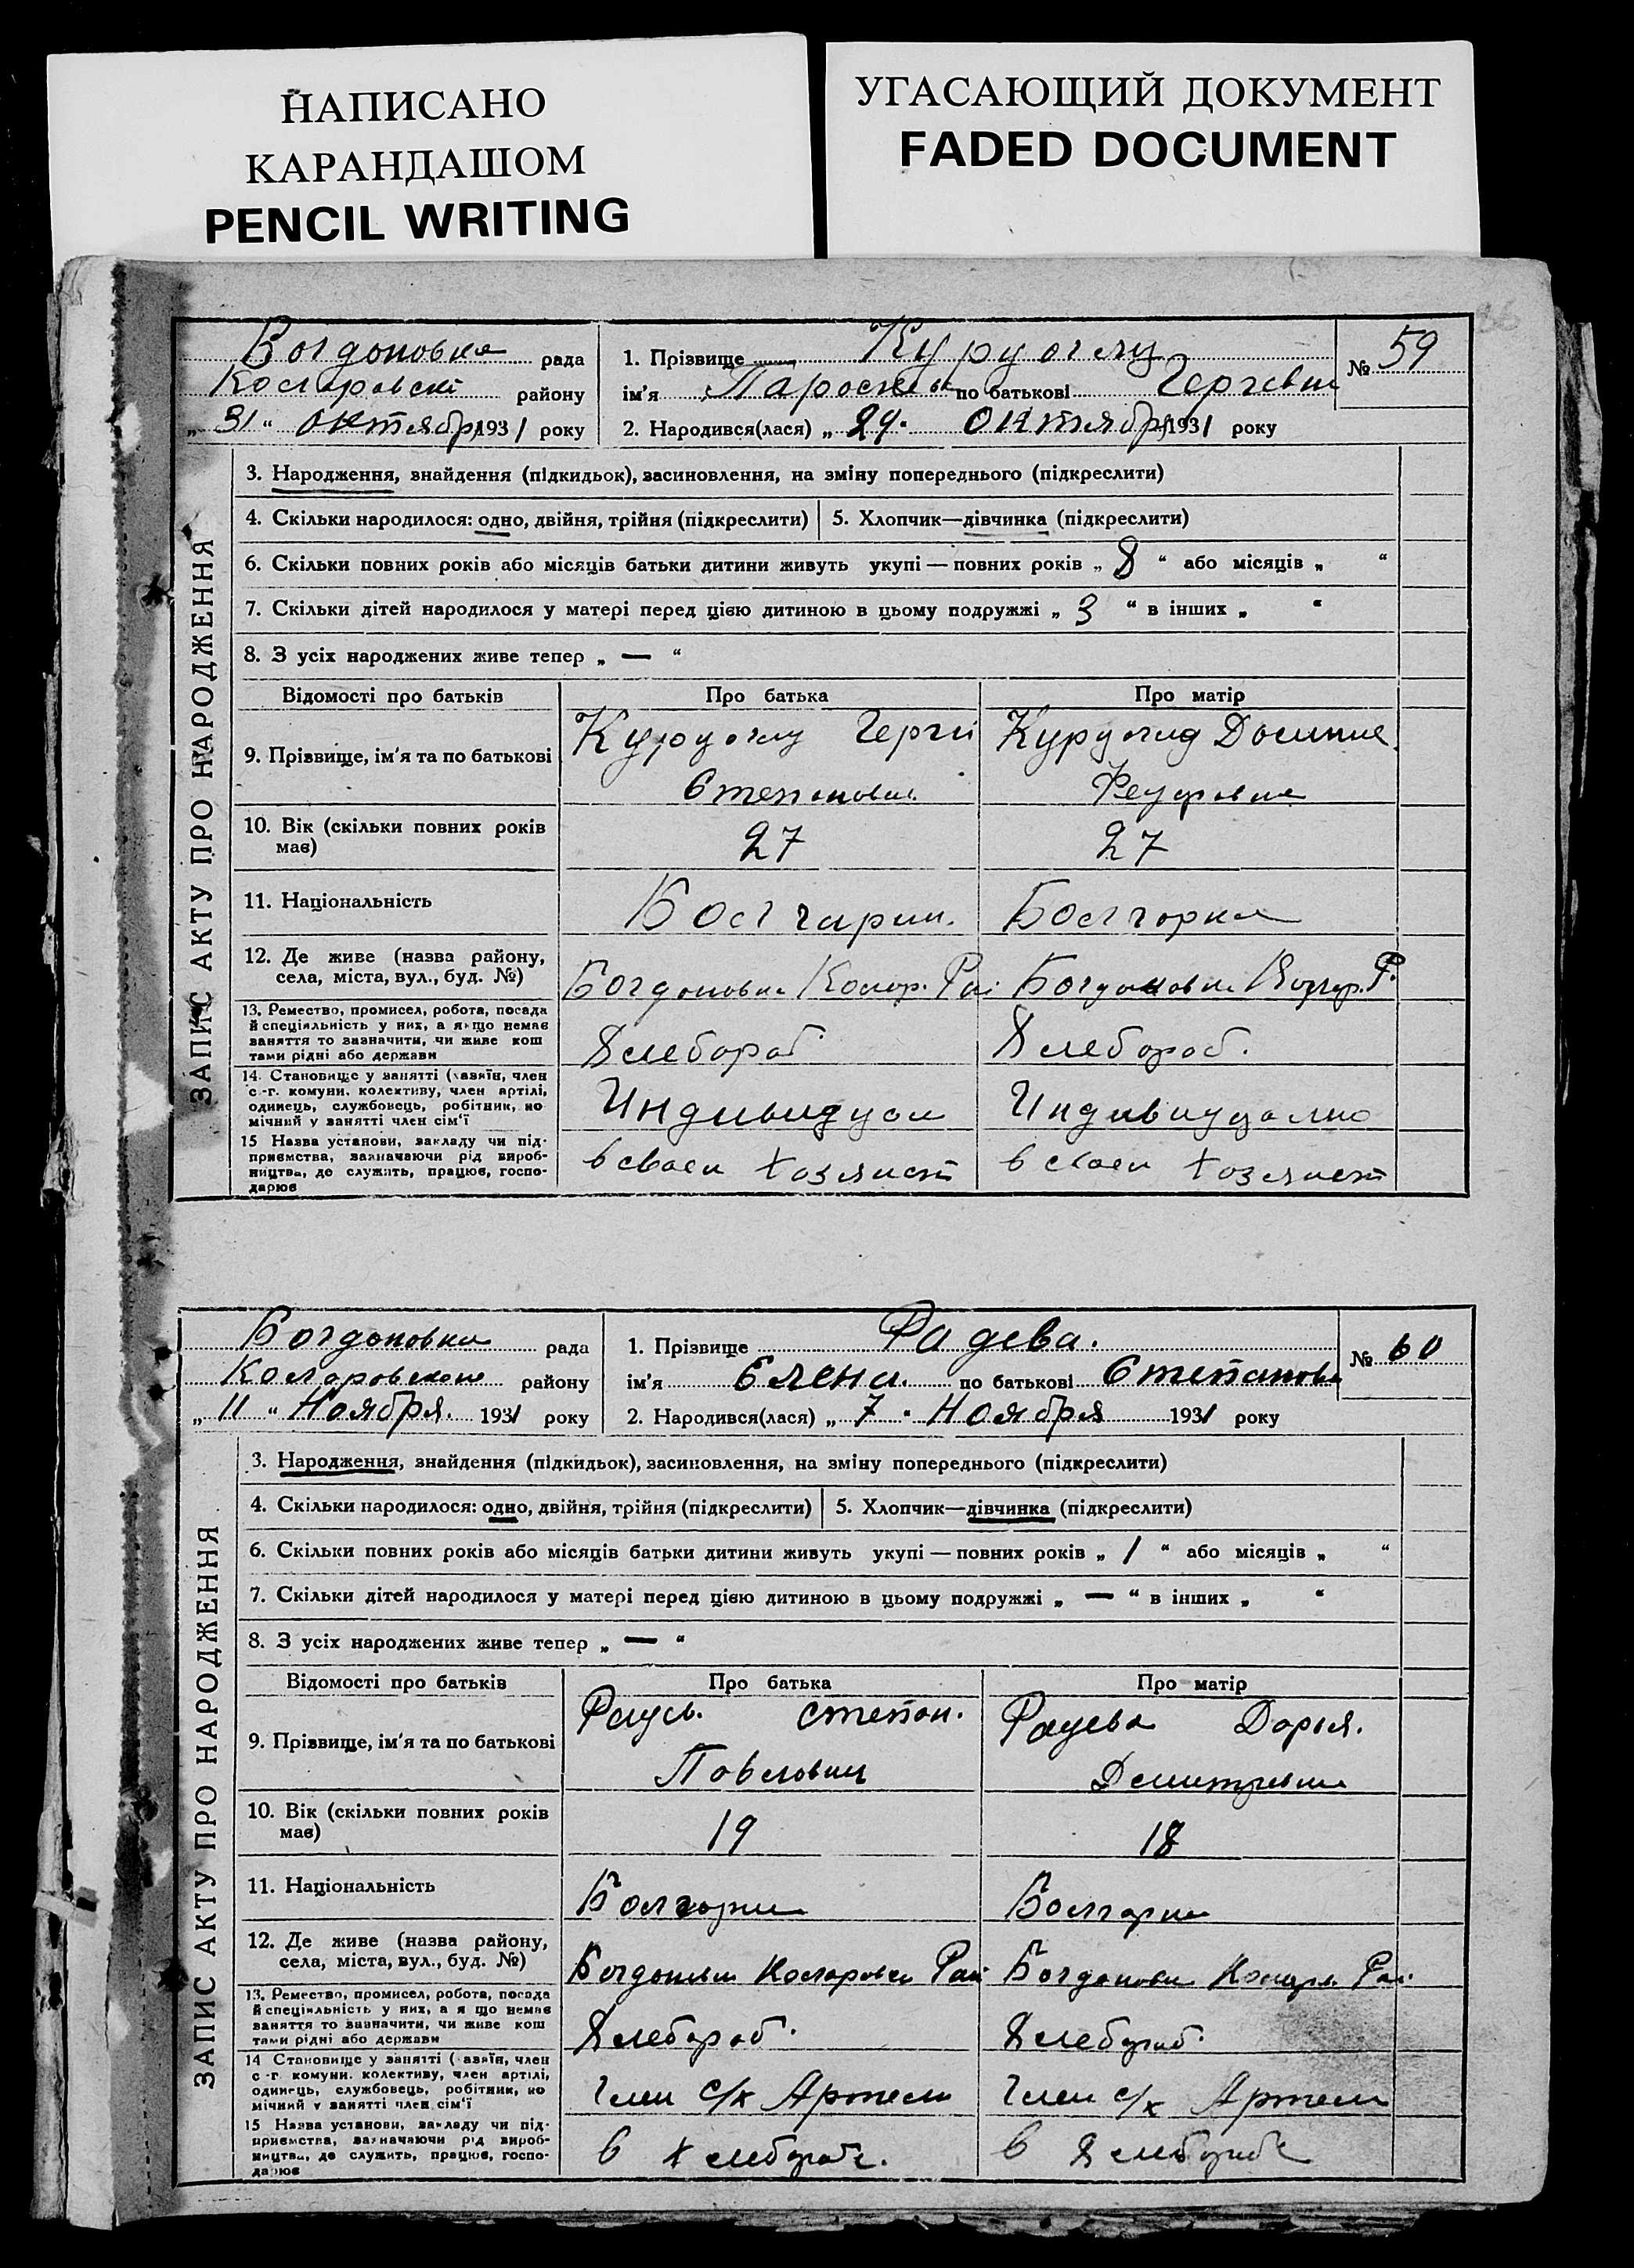 НАПИСАНО
КАРАНДАШОМ
PENCIL WRITING
УГАСАЮЩИЙ ДОКУМЕНТ
FADED DOCUMENT
ЗАПИС АКТУ ПРО НАРОДЖЕННЯ
Богдоновка рада
району
„31“ октября 1931 року
1. Прізвище Куруоглу
ім'я по батькові
№ 59
2. Народився(лася) „29“ Октября 1931 року
3. Народження, знайдення (підкидьок), засиновлення, на зміну попереднього (підкреслити)
4. Скільки народилося: одно, двійня, трійня (підкреслити) 5. Хлопчик—дівчинка (підкреслити)
6. Скільки повних років або місяців батьки дитини живуть укупі — повних років „8“ або місяців „ “
7. Скільки дітей народилося у матері перед цією дитиною в цьому подружжі „3“ в інших „ “
8. З усіх народжених живе тепер „—“
Відомості про батьків Про батька Про матір
9. Прізвище, ім'я та по батькові Куруоглу
10. Вік (скільки повних років має) 27 27
11. Національність Болгарин. Болгорка
12. Де живе (назва району, села, міста, вул., буд. №) Богдоновка Богдоновка
13. Ремество, промисел, робота, посада й спеціяльність у них, а якщо немає заняття то зазначити, чи живе коштами рідні або держави Хлебороб Хлебороб.
14. Становище у занятті (хазяїн, член с.-г. комуни, колективу, член артілі, одинець, службовець, робітник, помічний у занятті член сім'ї
15 Назва установи, закладу чи підприємства, зазначаючи рід виробництва, де служить, працює, господарює в своем хозяист в своем хозяист
ЗАПИС АКТУ ПРО НАРОДЖЕННЯ
Богдоновка рада
району
„11“ Ноября. 1931 року
1. Прізвище Радева.
ім'я Елена. по батькові Степановн
№ 60
2. Народився(лася) „7“ Ноября 1931 року
3. Народження, знайдення (підкидьок), засиновлення, на зміну попереднього (підкреслити)
4. Скільки народилося: одно, двійня, трійня (підкреслити) 5. Хлопчик—дівчинка (підкреслити)
6. Скільки повних років або місяців батьки дитини живуть укупі — повних років „1“ або місяців „ “
7. Скільки дітей народилося у матері перед цією дитиною в цьому подружжі „—“ в інших „ “
8. З усіх народжених живе тепер „—“
Відомості про батьків Про батька Про матір
9. Прізвище, ім'я та по батькові Степан. Радева Дарья.
Павлович
10. Вік (скільки повних років має) 19 18
11. Національність Болгорин Болгарка
12. Де живе (назва району, села, міста, вул., буд. №) Рай Богдоновка
13. Ремество, промисел, робота, посада й спеціяльність у них, а якщо немає заняття то зазначити, чи живе коштами рідні або держави Хлебороб. Хлебороб.
14 Становище у занятті (хазяїн, член с.-г. комуни, колективу, член артілі, одинець, службовець, робітник, помічний у занятті член сім'ї Член с/х Артели Член с/х Артели
15 Назва установи, закладу чи підприємства, зазначаючи рід виробництва, де служить, працює, господарює в в